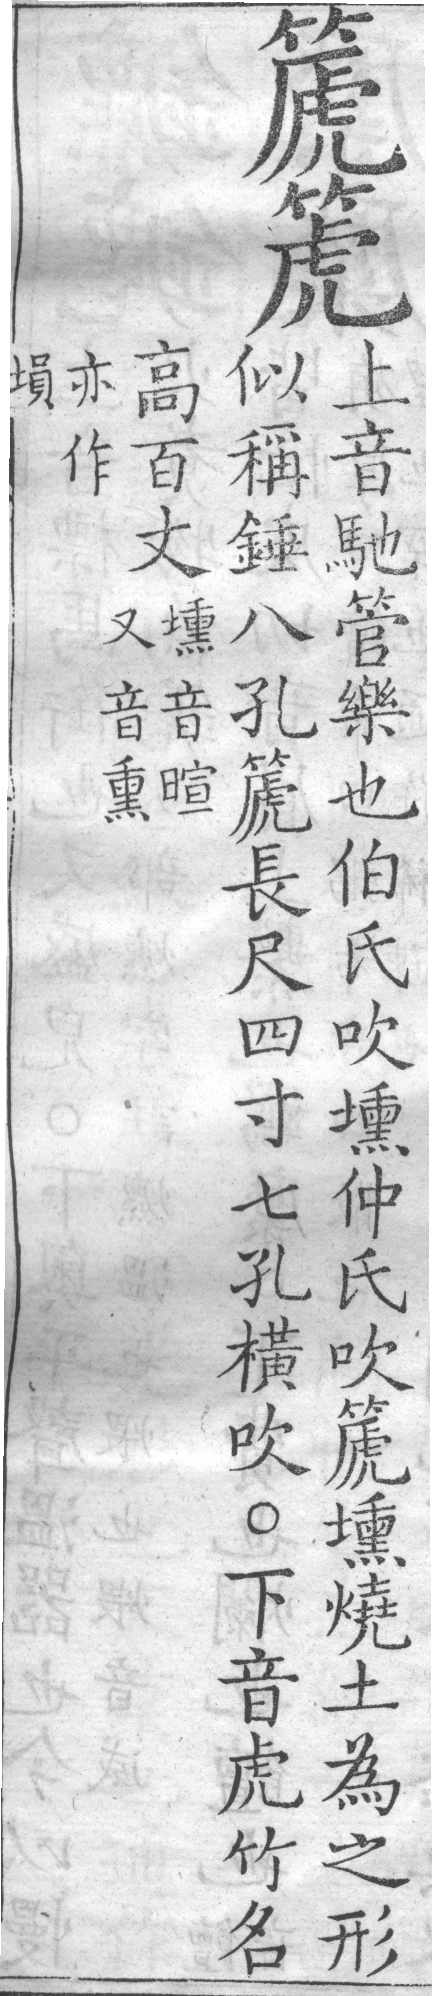 篪箎
上音馳管樂也伯氏吹壎仲氏吹篪壎燒土為之形
似稱錘八孔篪長尺四寸七孔橫吹○下音虎竹名
高百丈
壎音暄
又音熏
亦作
塤